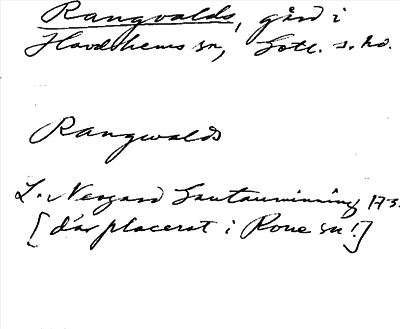 Rangvalds, gård i
Havdhems sn, Gotl. s. hd.
Rangwalds
L. Neogard Gautauminning 173.
[där placerat i Rone sn!]